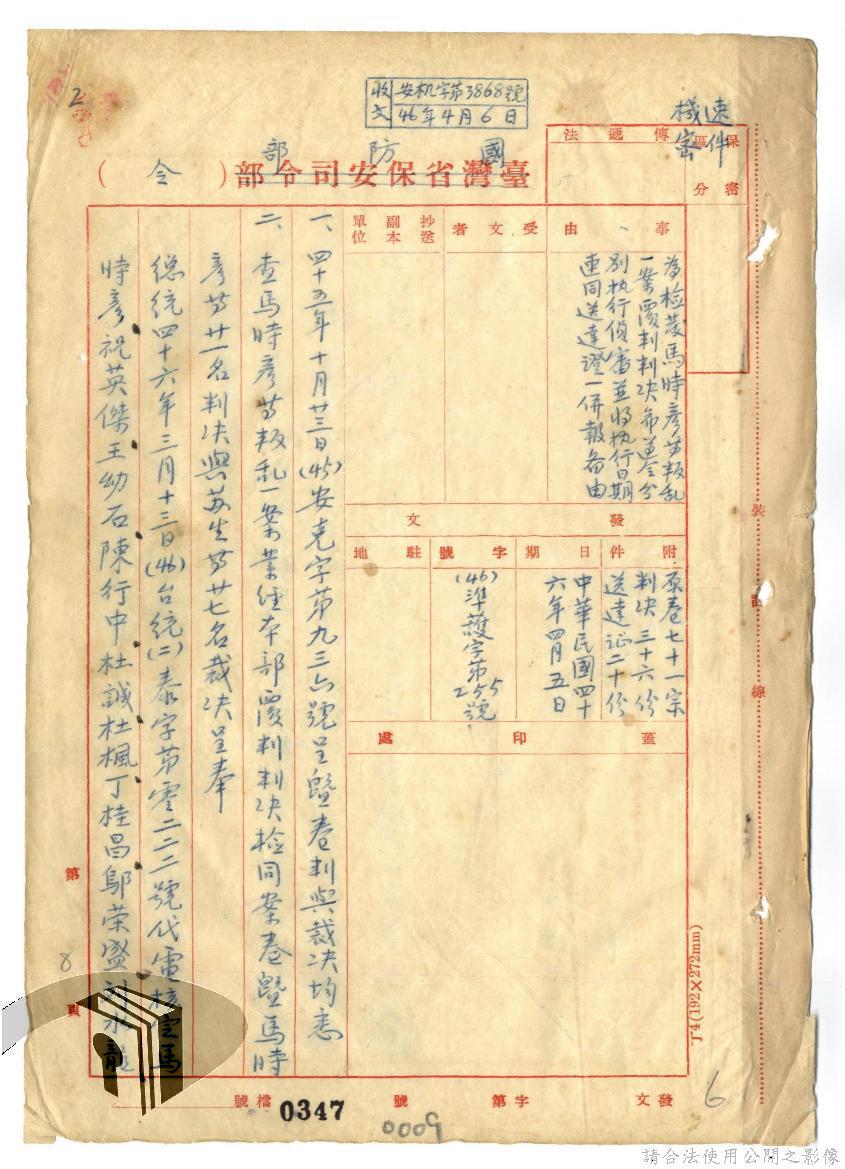 收文 安机字第3868號
46年4月6日
機密
速件
保密區分
傳遞法
國防部
臺灣省保安司令部
（令）
事由
為检發馬時彥等叛乱
一案覆判判决希遵令分
别执行偵審並将执行日期
連同送達證一併報备由
受文者
抄送副本單位
發文
附件
原卷七十一宗
判决三十六份
送達证二十份
日期
中華民國四十
六年四月五日
字號
(46)準護字第
255號
駐地
蓋印處
一、四十五年十月廿三日(45)安克字第九三六號呈暨卷判與裁决均悉
二、查馬時彥等叛乱一案業經本部覆判判决检同案卷暨馬時
彥等廿一名判决與苏生等廿七名裁决呈奉
總統四十六年三月十三日(46)台統(二)泰字第零二二二號代電核定馬
時彥祝英傑王幼石陳行中杜誠杜楓丁桂昌鄔荣盛
裝訂線
J4(192×272mm)
第8頁
發文 字第 號
檔號 0347
0009
6
2
請合法使用公開之影像